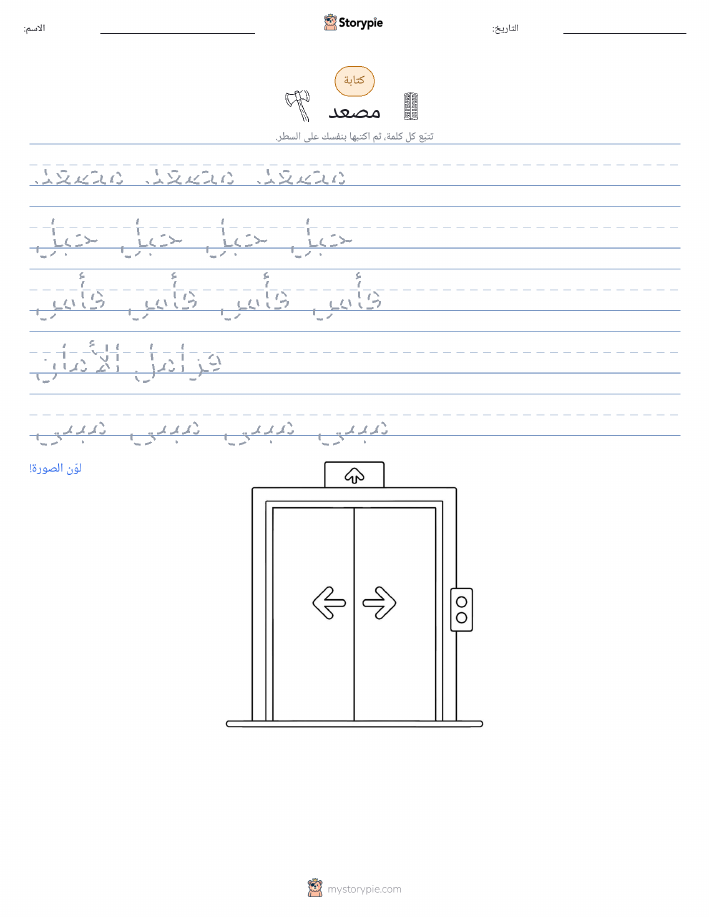 الاسم:
Storypie
التاريخ:
كتابة
مصعد
تتبّع كل كلمة، ثم اكتبها بنفسك على السطر.
مصعد مصعد مصعد
حبل حبل حبل حبل
فأس فأس فأس فأس
فرامل الأمان
مبنى مبنى مبنى مبنى
لوّن الصورة!
mystorypie.com